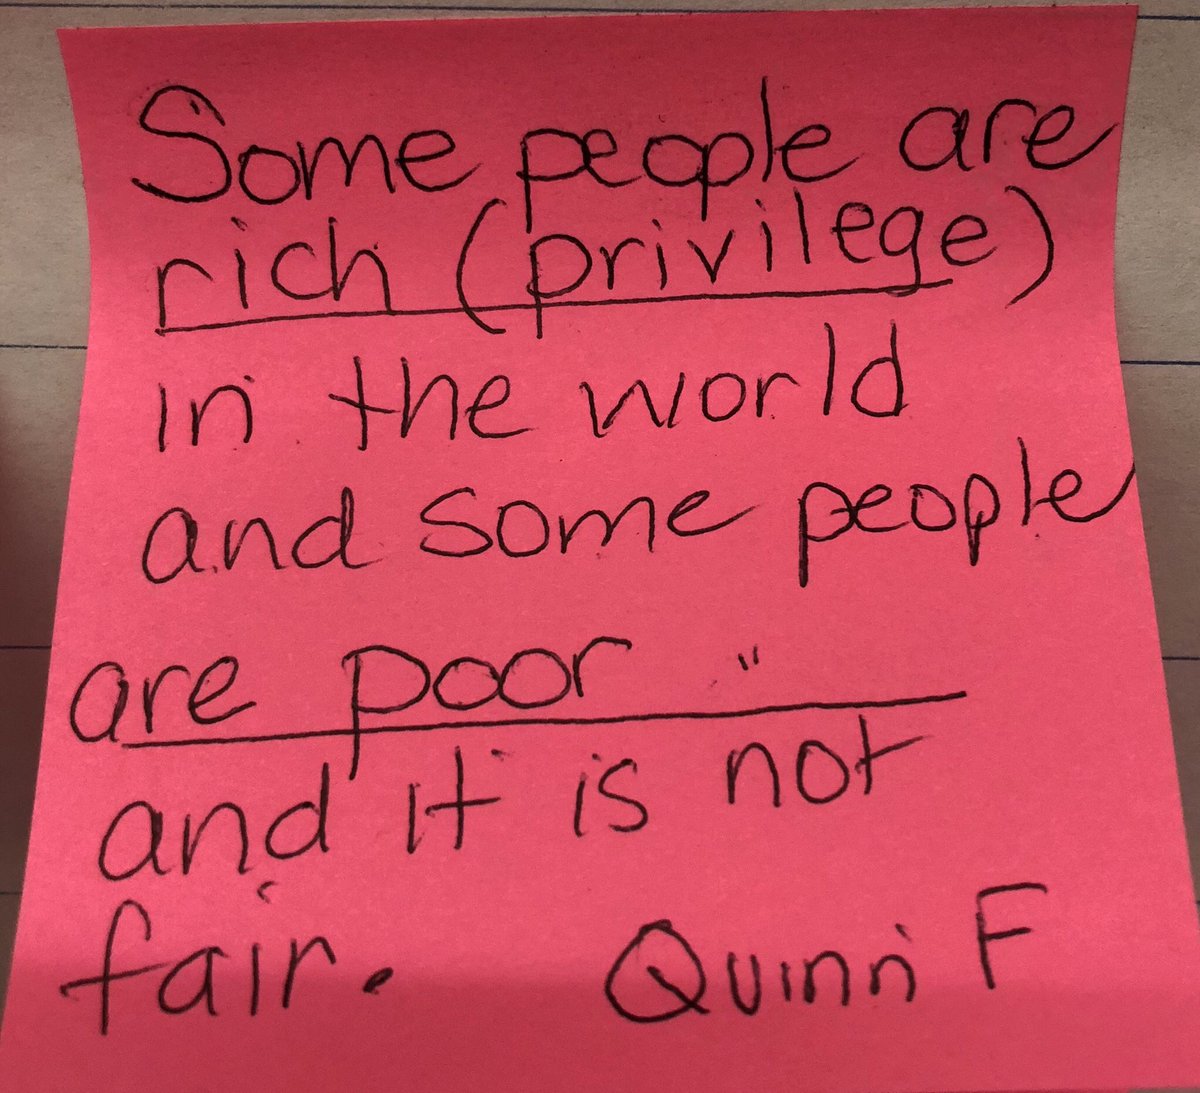 Some people are
rich (privilege)
in the world
and some people
are poor "
and it is not
fair. Quinn F